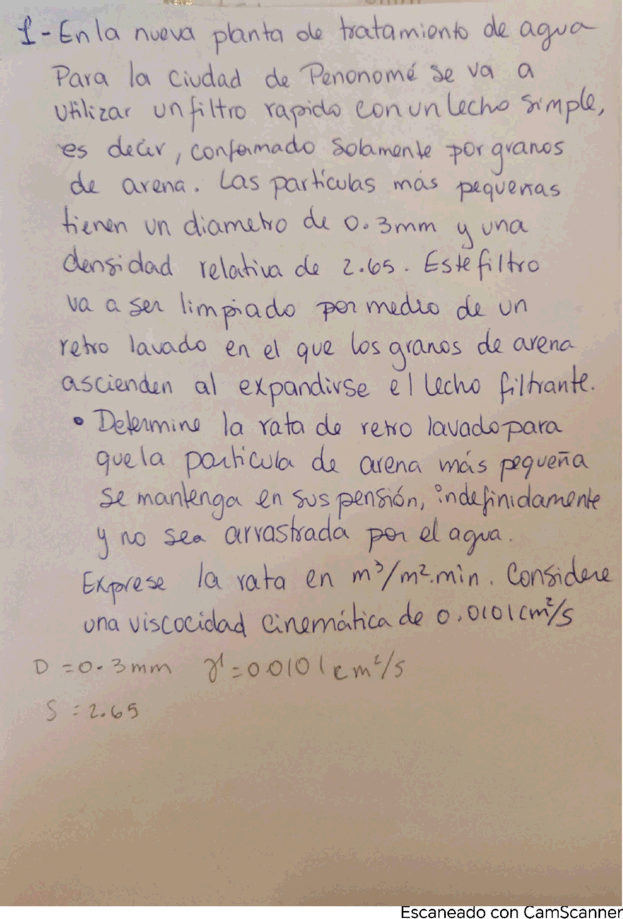 1-En la nueva planta de tratamiento de agua
Para la ciudad de Penonomé se va a
utilizar un filtro rapido con un lecho simple,
es decir, conformado solamente por granos
de arena. Las partículas más pequeñas
tienen un diametro de 0.3mm y una
densidad relativa de 2.65. Este filtro
va a ser limpiado por medio de un
retro lavado en el que los granos de arena
ascienden al expandirse el lecho filtrante.
• Determine la rata de retro lavado para
que la partícula de arena más pequeña
se mantenga en suspensión, indefinidamente
y no sea arrastrada por el agua.
Exprese la rata en m³/m².min. Considere
una viscocidad cinemática de 0.0101cm²/s
D = 0.3mm γ = 0.0101cm²/s
S = 2.65
Escaneado con CamScanner